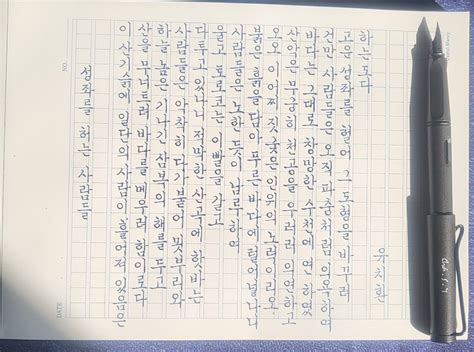 성좌를 허는 사람들
이 산기슭에 일단의 사람이 흩어져 있음은
산을 무너뜨려 바다를 메우려 함이로다
하늘 높은 기나긴 산복의 해를 두고
사람들은 악착히 다기붙어
다투고 있나니 적막한 산곡에 항바는
울고 도로코는 이빨을 갈고
사람들은 노한 듯이 남루하여
붉은 흙을 담아 푸른 바다에 떨어넣나니
오오 이 어찌 짓궂은 인위의 노력이리오
산악은 무궁히 천공을 우러러 의연하고
바다는 그대로 창망한 수천에 연하였
건만 사람들은 오직 파충처럼 의혹하여
고운 성좌를 헐어 그 도형을 바꾸려
하는도다
유치환
NO.
DATE